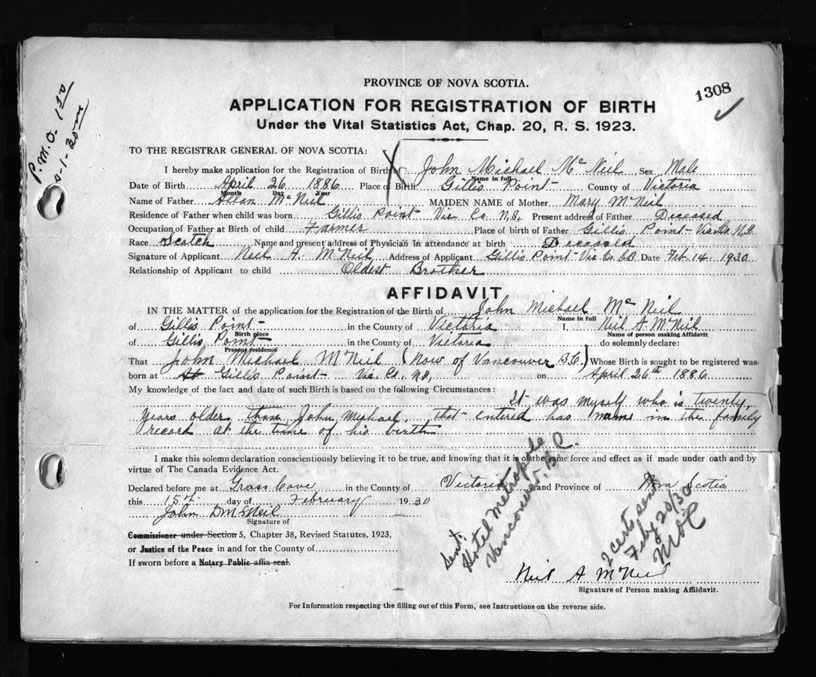 PROVINCE OF NOVA SCOTIA.
1308
P.M.O. 1.50
APPLICATION FOR REGISTRATION OF BIRTH
Under the Vital Statistics Act, Chap. 20, R. S. 1923.
TO THE REGISTRAR GENERAL OF NOVA SCOTIA:
I hereby make application for the Registration of Birth of John Michael McNeil Sex Male
Name in full
Date of Birth April 26 1886 Place of Birth Gillis Point County of Victoria
Month Day Year
Name of Father Allan McNeil MAIDEN NAME of Mother Mary McNeil
Residence of Father when child was born Gillis Point Vic Co. N.S. Present address of Father Deceased
Occupation of Father at Birth of child Farmer Place of birth of Father Gillis Point Vic Co. N.S.
Race Scotch Name and present address of Physician in attendance at birth Deceased
Signature of Applicant Neil A. McNeil Address of Applicant Gillis Point Vic. Co. C.B. Date Feb. 14 1930
Relationship of Applicant to child Oldest Brother
AFFIDAVIT
IN THE MATTER of the application for the Registration of the Birth of John Michael McNeil
Name in full
of Gillis Point in the County of Victoria I, Neil A. McNeil
Birth place Name of person making Affidavit
of Gillis Point in the County of Victoria do solemnly declare:
Present residence
That John Michael McNeil (Now of Vancouver B.C.) Whose Birth is sought to be registered was
born at Gillis Point Vic. Co. N.S. on April 26th 1886
My knowledge of the fact and date of such Birth is based on the following Circumstances:
It was myself who is twenty
years older than John Michael that entered his name in the family
record at the time of his birth
I make this solemn declaration conscientiously believing it to be true, and knowing that it is of the same force and effect as if made under oath and by
virtue of The Canada Evidence Act.
Declared before me at Grass Cove in the County of Victoria and Province of Nova Scotia
this 15th day of February 1930
John D McNeil
Signature of
Commissioner under Section 5, Chapter 38, Revised Statutes, 1923,
or Justice of the Peace in and for the County of
If sworn before a Notary Public affix seal.
Sent:
Hotel Metropole
Vancouver, B.C.
2 certs sent
Feb 20/30
Neil A McNeil
Signature of Person making Affidavit.
For Information respecting the filling out of this Form, see Instructions on the reverse side.